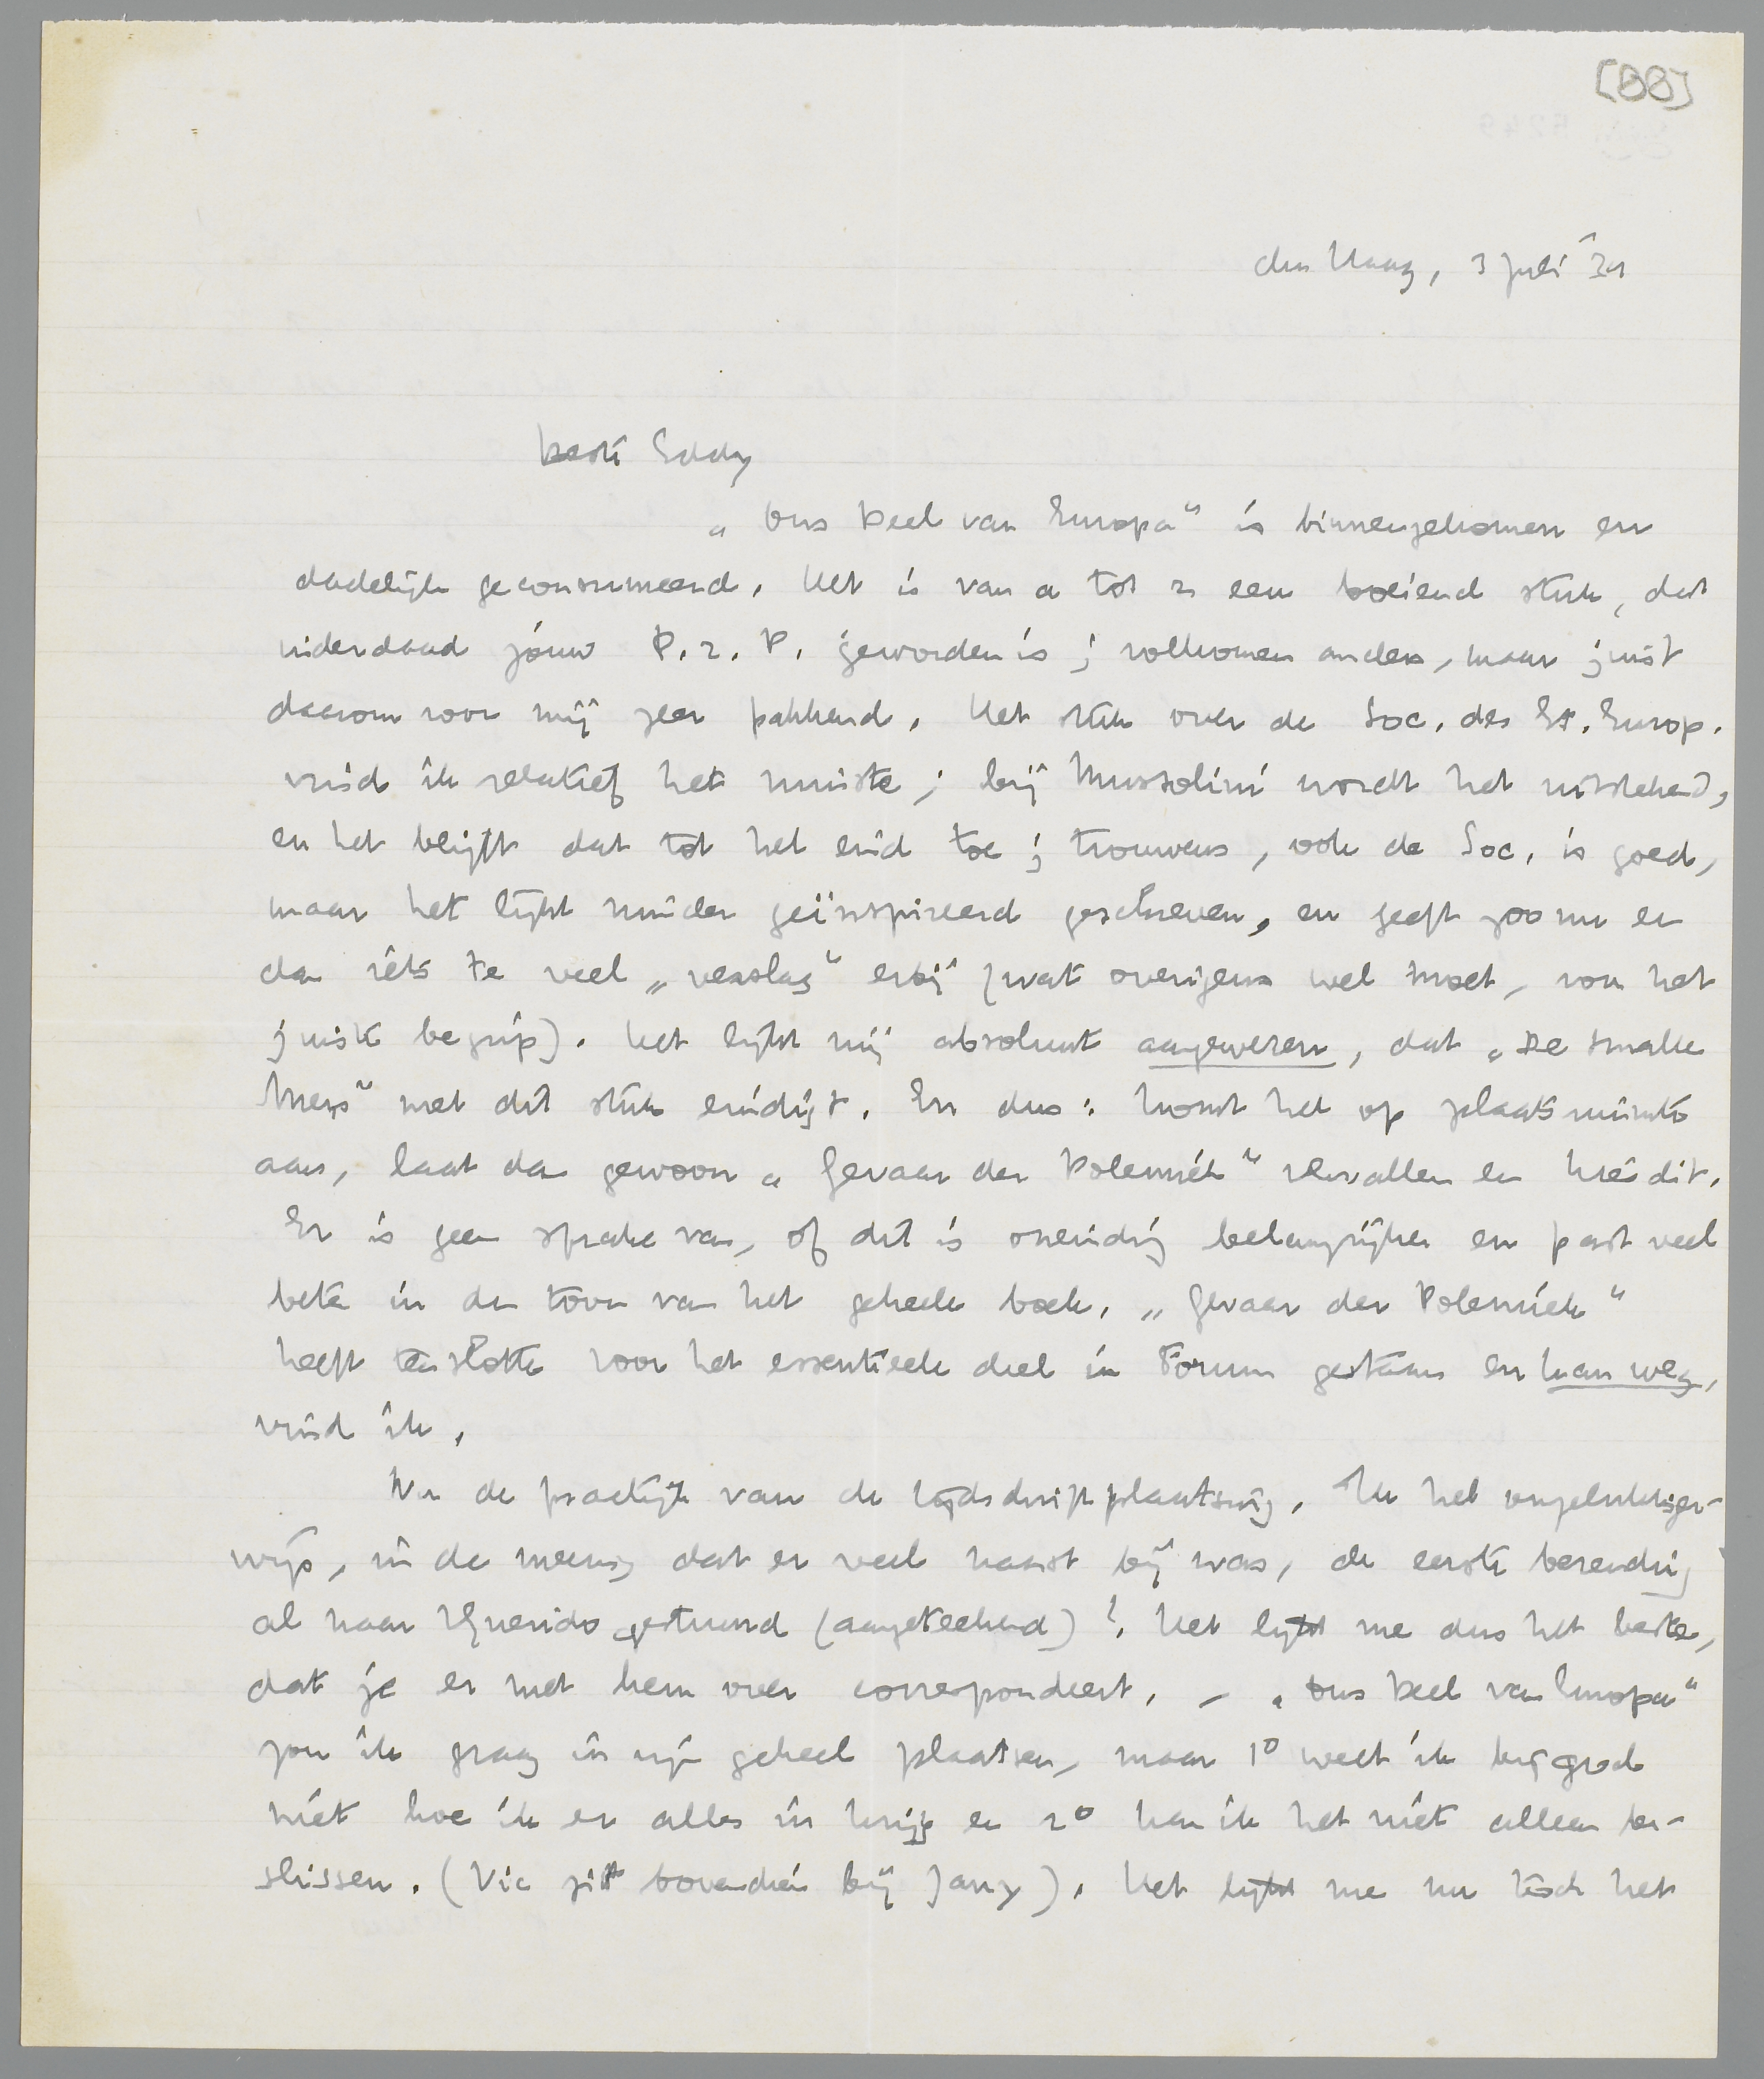 [BB]
den Haag, 3 Juli '34
beste Eddy
„Ons Deel van Europa" is binnengekomen en
dadelijk geconsumeerd. Het is van a tot z een boeiend stuk, dat
inderdaad jouw P.z.P. geworden is; volkomen anders, maar juist
daarom voor mij zeer pakkend. Het stuk over de Soc. des Et. Europ.
vind ik relatief het minste; bij Mussolini wordt het uitstekend,
en het blijft dat tot het eind toe; trouwens, ook de Soc. is goed,
maar het lijkt minder geïnspireerd geschreven, en geeft zoo nu en
dan iets te veel „verslag" erbij (wat overigens wel moet, voor het
juiste begrip). Het lijkt mij absoluut aangewezen, dat „De Smalle
Mens" met dit stuk eindigt. En dus: komt het op plaatsruimte
aan, laat dan gewoon „Gevaar der Polemiek" vervallen en kies dit.
Er is geen sprake van, of dit is oneindig belangrijker en past veel
beter in den toon van het geheele boek. „Gevaar der Polemiek"
heeft tenslotte voor het essentieele deel in Forum gestaan en kan weg,
vind ik.
Nu de practijk van de tijdschriftplaatsing. Ik heb ongelukkiger-
wijs, in de meening dat er veel haast bij was, de eerste bezending
al naar Querido gestuurd (aangeteekend)! Het lijkt me dus het beste,
dat je er met hem over correspondeert. – „Ons Deel van Europa"
zou ik graag in zijn geheel plaatsen, maar 1° weet ik bij god
niet hoe ik er alles in krijg en 2° kan ik het niet alleen be-
slissen. (Vic zit bovendien bij Jany). Het lijkt me nu toch het